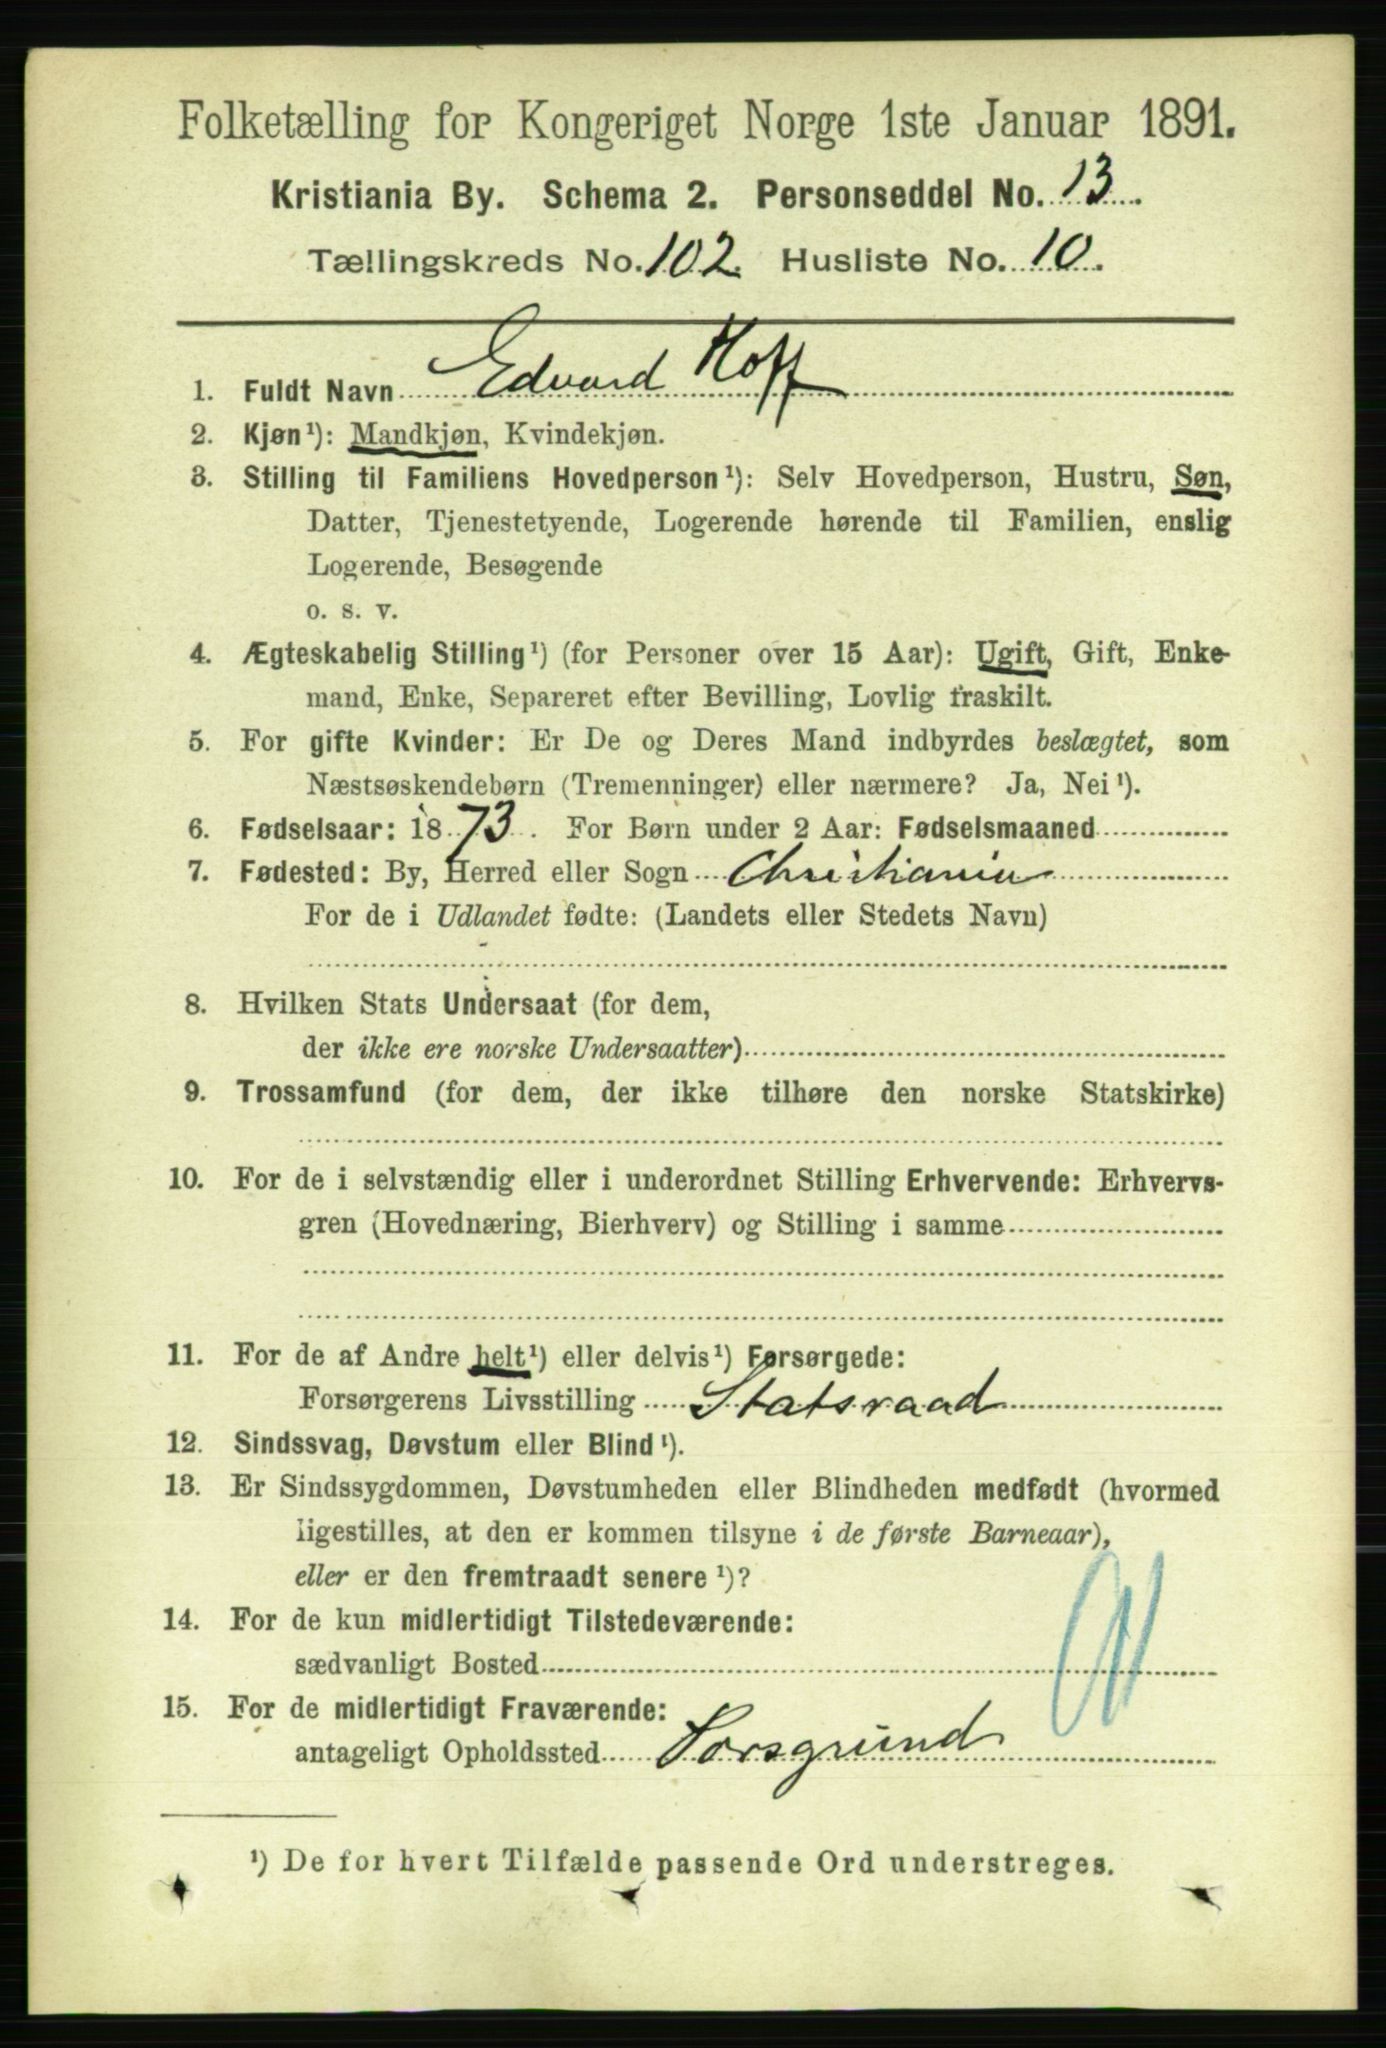 Folketælling for Kongeriget Norge 1ste Januar 1891.
Kristiania By. Schema 2. Personseddel No. 13.
Tællingskreds No. 102. Husliste No. 10.
1. Fuldt Navn Edvard Hoff
2. Kjøn¹): Mandkjøn, Kvindekjøn.
3. Stilling til Familiens Hovedperson¹): Selv Hovedperson, Hustru, Søn,
Datter, Tjenestetyende, Logerende hørende til Familien, enslig
Logerende, Besøgende
o. s. v.
4. Ægteskabelig Stilling¹) (for Personer over 15 Aar): Ugift, Gift, Enke-
mand, Enke, Separeret efter Bevilling, Lovlig fraskilt.
5. For gifte Kvinder: Er De og Deres Mand indbyrdes beslægtet, som
Næstsøskendebørn (Tremenninger) eller nærmere? Ja, Nei¹).
6. Fødselsaar: 1873. For Børn under 2 Aar: Fødselsmaaned
7. Fødested: By, Herred eller Sogn Christiania
For de i Udlandet fødte: (Landets eller Stedets Navn)
8. Hvilken Stats Undersaat (for dem,
der ikke ere norske Undersaatter)
9. Trossamfund (for dem, der ikke tilhøre den norske Statskirke)
10. For de i selvstændig eller i underordnet Stilling Erhvervende: Erhvervs-
gren (Hovednæring, Bierhverv) og Stilling i samme
11. For de af Andre helt¹) eller delvis¹) Forsørgede:
Forsørgerens Livsstilling Statsraad
12. Sindssvag, Døvstum eller Blind¹).
13. Er Sindssygdommen, Døvstumheden eller Blindheden medfødt (hvormed
ligestilles, at den er kommen tilsyne i de første Barneaar),
eller er den fremtraadt senere¹)?
14. For de kun midlertidigt Tilstedeværende:
sædvanligt Bosted
15. For de midlertidigt Fraværende:
antageligt Opholdssted Porsgrund
¹) De for hvert Tilfælde passende Ord understreges.